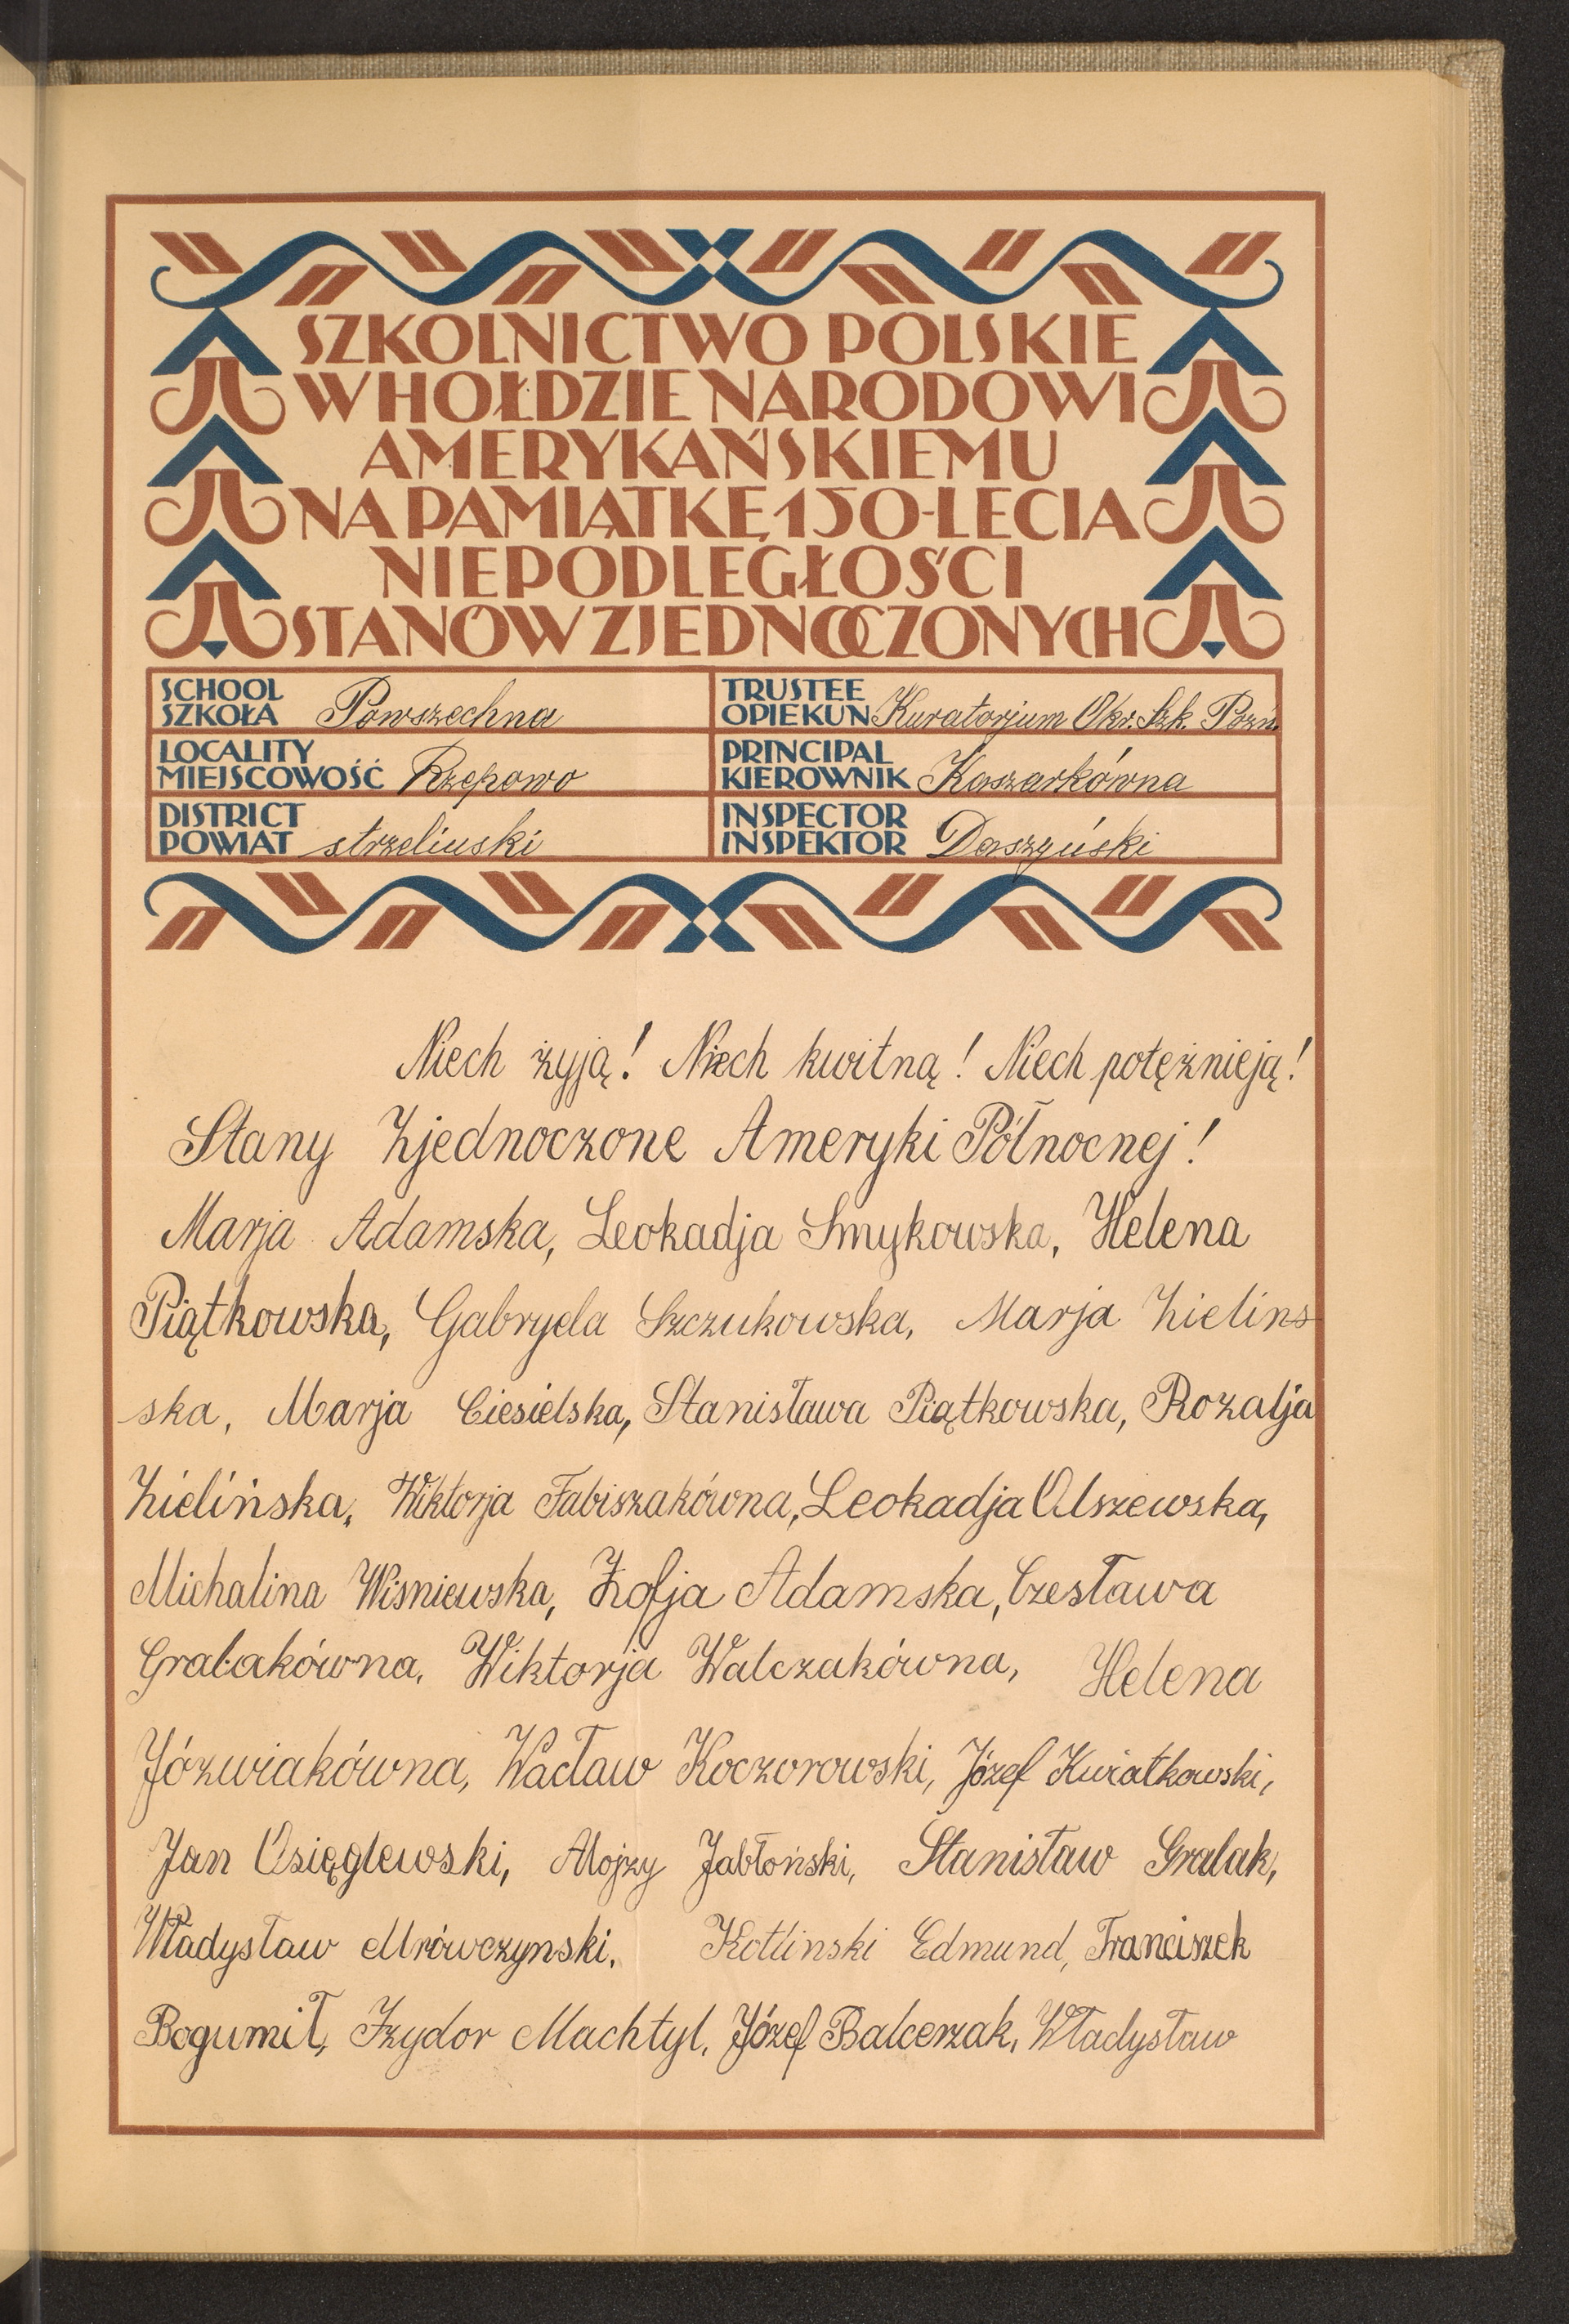 SZKOLNICTWO POLSKIE
W HOŁDZIE NARODOWI
AMERYKAŃSKIEMU
NA PAMIĄTKĘ 150-LECIA
NIEPODLEGŁOŚCI
STANÓW ZJEDNOCZONYCH
SCHOOL
SZKOŁA Powszechna
TRUSTEE
OPIEKUN Kuratorjum Okr. Szk. Pozn.
LOCALITY
MIEJSCOWOŚĆ Rzepowo
PRINCIPAL
KIEROWNIK Kaszarkówna
DISTRICT
POWIAT strzeliński
INSPECTOR
INSPEKTOR Daszyński
Niech żyją! Niech kwitną! Niech potężnieją!
Stany Zjednoczone Ameryki Północnej!
Marja Adamska, Leokadja Smykowska, Helena
Piątkowska, Gabryela Szczukowska, Marja Zielins
ska, Marja Ciesielska, Stanisława Piątkowska, Rozalja
Zielińska, Wiktorja Fabiszakówna, Leokadja Olszewska,
Michalina Wisniewska, Zofja Adamska, Czesława
Gralakówna, Wiktorja Walczakówna, Helena
Józwiakówna, Wacław Koczorowski, Józef Kwiatkowski,
Jan Osięglewski, Alojzy Jabłoński, Stanisław Gralak,
Władysław Mrówczynski, Kotlinski Edmund, Franciszek
Bogumił, Izydor Machtyl, Józef Balcerzak, Władysław